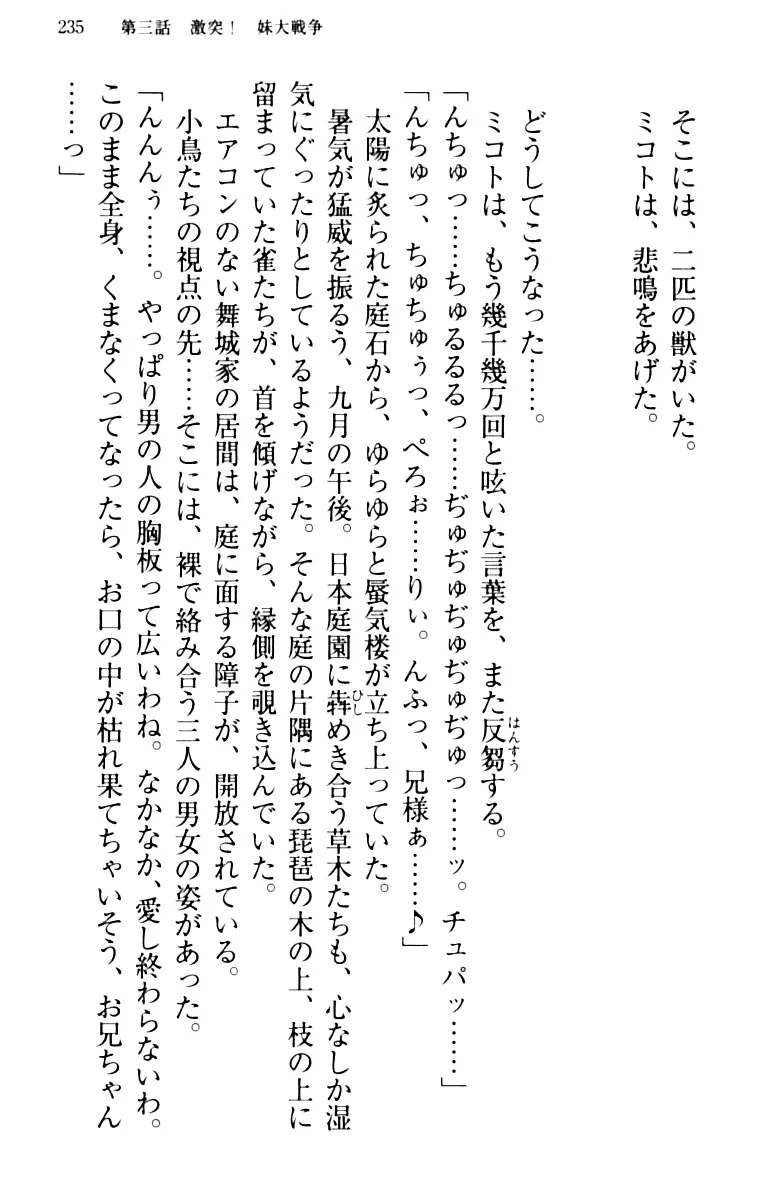 235　第三話　激突！　妹大戦争
そこには、二匹の獣がいた。
ミコトは、悲鳴をあげた。
どうしてこうなった……。
ミコトは、もう幾千幾万回と呟いた言葉を、また反芻する。
「んちゅっ……ちゅるるるっ……ぢゅぢゅぢゅぢゅぢゅっ……ッ。チュパッ……」
「んちゅっ、ちゅちゅぅっ、ぺろぉ……りぃ。んふっ、兄様ぁ……♪」
太陽に炙られた庭石から、ゆらゆらと蜃気楼が立ち上っていた。
暑気が猛威を振るう、九月の午後。日本庭園に犇めき合う草木たちも、心なしか湿
気にぐったりとしているようだった。そんな庭の片隅にある琵琶の木の上、枝の上に
留まっていた雀たちが、首を傾げながら、縁側を覗き込んでいた。
エアコンのない舞城家の居間は、庭に面する障子が、開放されている。
小鳥たちの視点の先……そこには、裸で絡み合う三人の男女の姿があった。
「んんんぅ……。やっぱり男の人の胸板って広いわね。なかなか、愛し終わらないわ。
このまま全身、くまなくってなったら、お口の中が枯れ果てちゃいそう、お兄ちゃん
……っ」